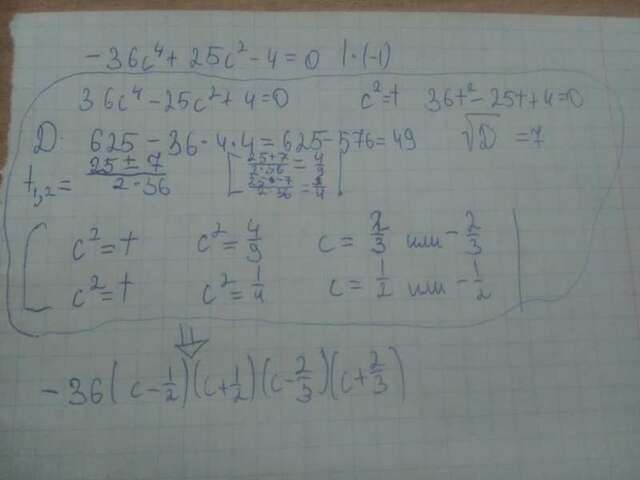 -36c⁴ + 25c² - 4 = 0 | · (-1)
36c⁴ - 25c² + 4 = 0   c² = t   36t² - 25t + 4 = 0
D: 625 - 36 · 4 · 4 = 625 - 576 = 49   √D = 7
t₁,₂ = (25 ± 7)/(2 · 36)   [ (25 + 7)/(2 · 36) = 4/9
(25 - 7)/(2 · 36) = 1/4
c² = t   c² = 4/9   c = 2/3 или - 2/3
c² = t   c² = 1/4   c = 1/2 или - 1/2
⇓
-36(c - 1/2)(c + 1/2)(c - 2/3)(c + 2/3)